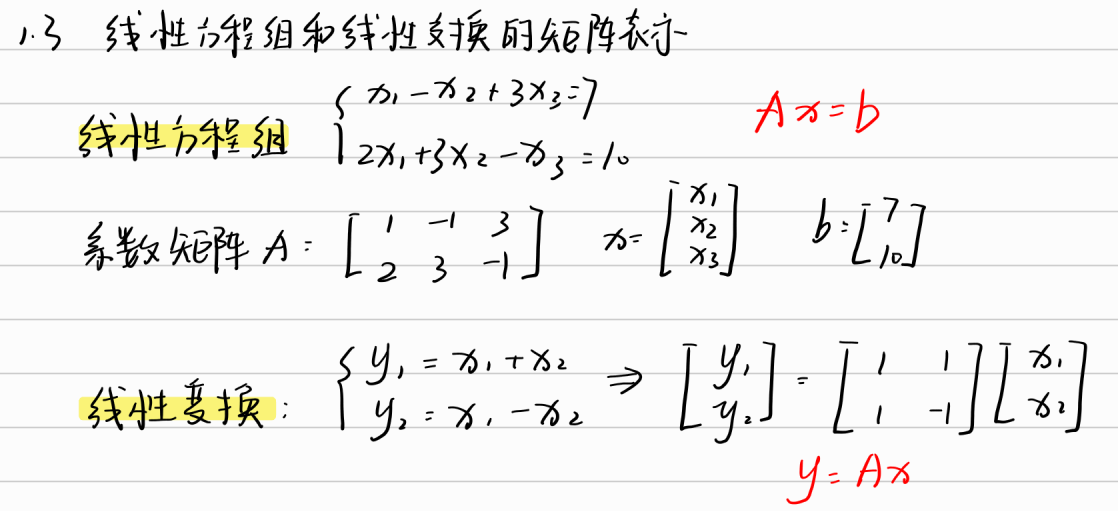 1.3 线性方程组和线性变换的矩阵表示
线性方程组 { x₁ - x₂ + 3x₃ = 7
2x₁ + 3x₂ - x₃ = 10
Ax = b
系数矩阵 A = [ 1 -1 3 ; 2 3 -1 ] x = [ x₁ ; x₂ ; x₃ ] b = [ 7 ; 10 ]
线性变换: { y₁ = x₁ + x₂ ; y₂ = x₁ - x₂ ⇒ [ y₁ ; y₂ ] = [ 1 1 ; 1 -1 ] [ x₁ ; x₂ ]
y = Ax